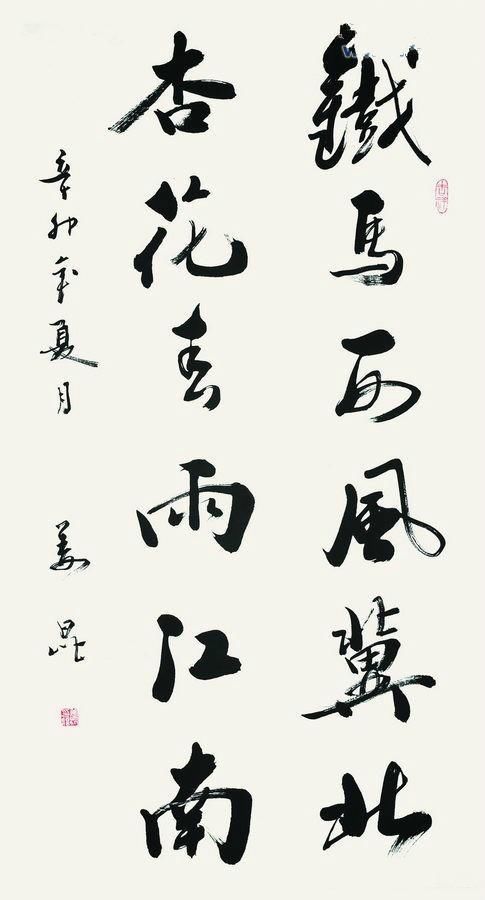 鐵馬西風冀北
杏花春雨江南
辛卯年夏月
姜昆